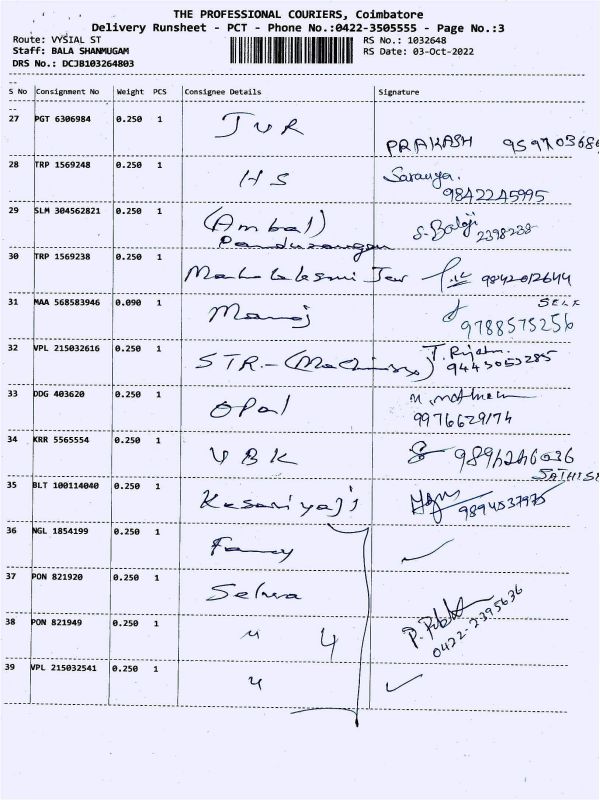 THE PROFESSIONAL COURIERS, Coimbatore
Delivery Runsheet - PCT - Phone No.:0422-3505555 - Page No.:3
Route: VYSIAL ST
RS No.: 1032648
Staff: BALA SHANMUGAM
RS Date: 03-Oct-2022
DRS No.: DCJB103264803
S No Consignment No Weight PCS Consignee Details Signature
27 PGT 6306984 0.250 1 JVR
PRAKASH
28 TRP 1569248 0.250 1 HS Saranya.
9842245995
29 SLM 304562821 0.250 1 (Ambal) S. Balaji 2398238
Pandurangan
30 TRP 1569238 0.250 1 9842012644
31 MAA 568583946 0.090 1 Manoj SELF
9788575256
32 VPL 215032616 0.250 1 STR.-
9443053285
33 DDG 403620 0.250 1 Opal
9976629174
34 KRR 5565554 0.250 1 VBK
35 BLT 100114040 0.250 1 Kesariyaji 9894537975
36 NGL 1854199 0.250 1 Fancy
37 PON 821920 0.250 1 Selva
38 PON 821949 0.250 1 " 4
0422-2395636
39 VPL 215032541 0.250 1 "